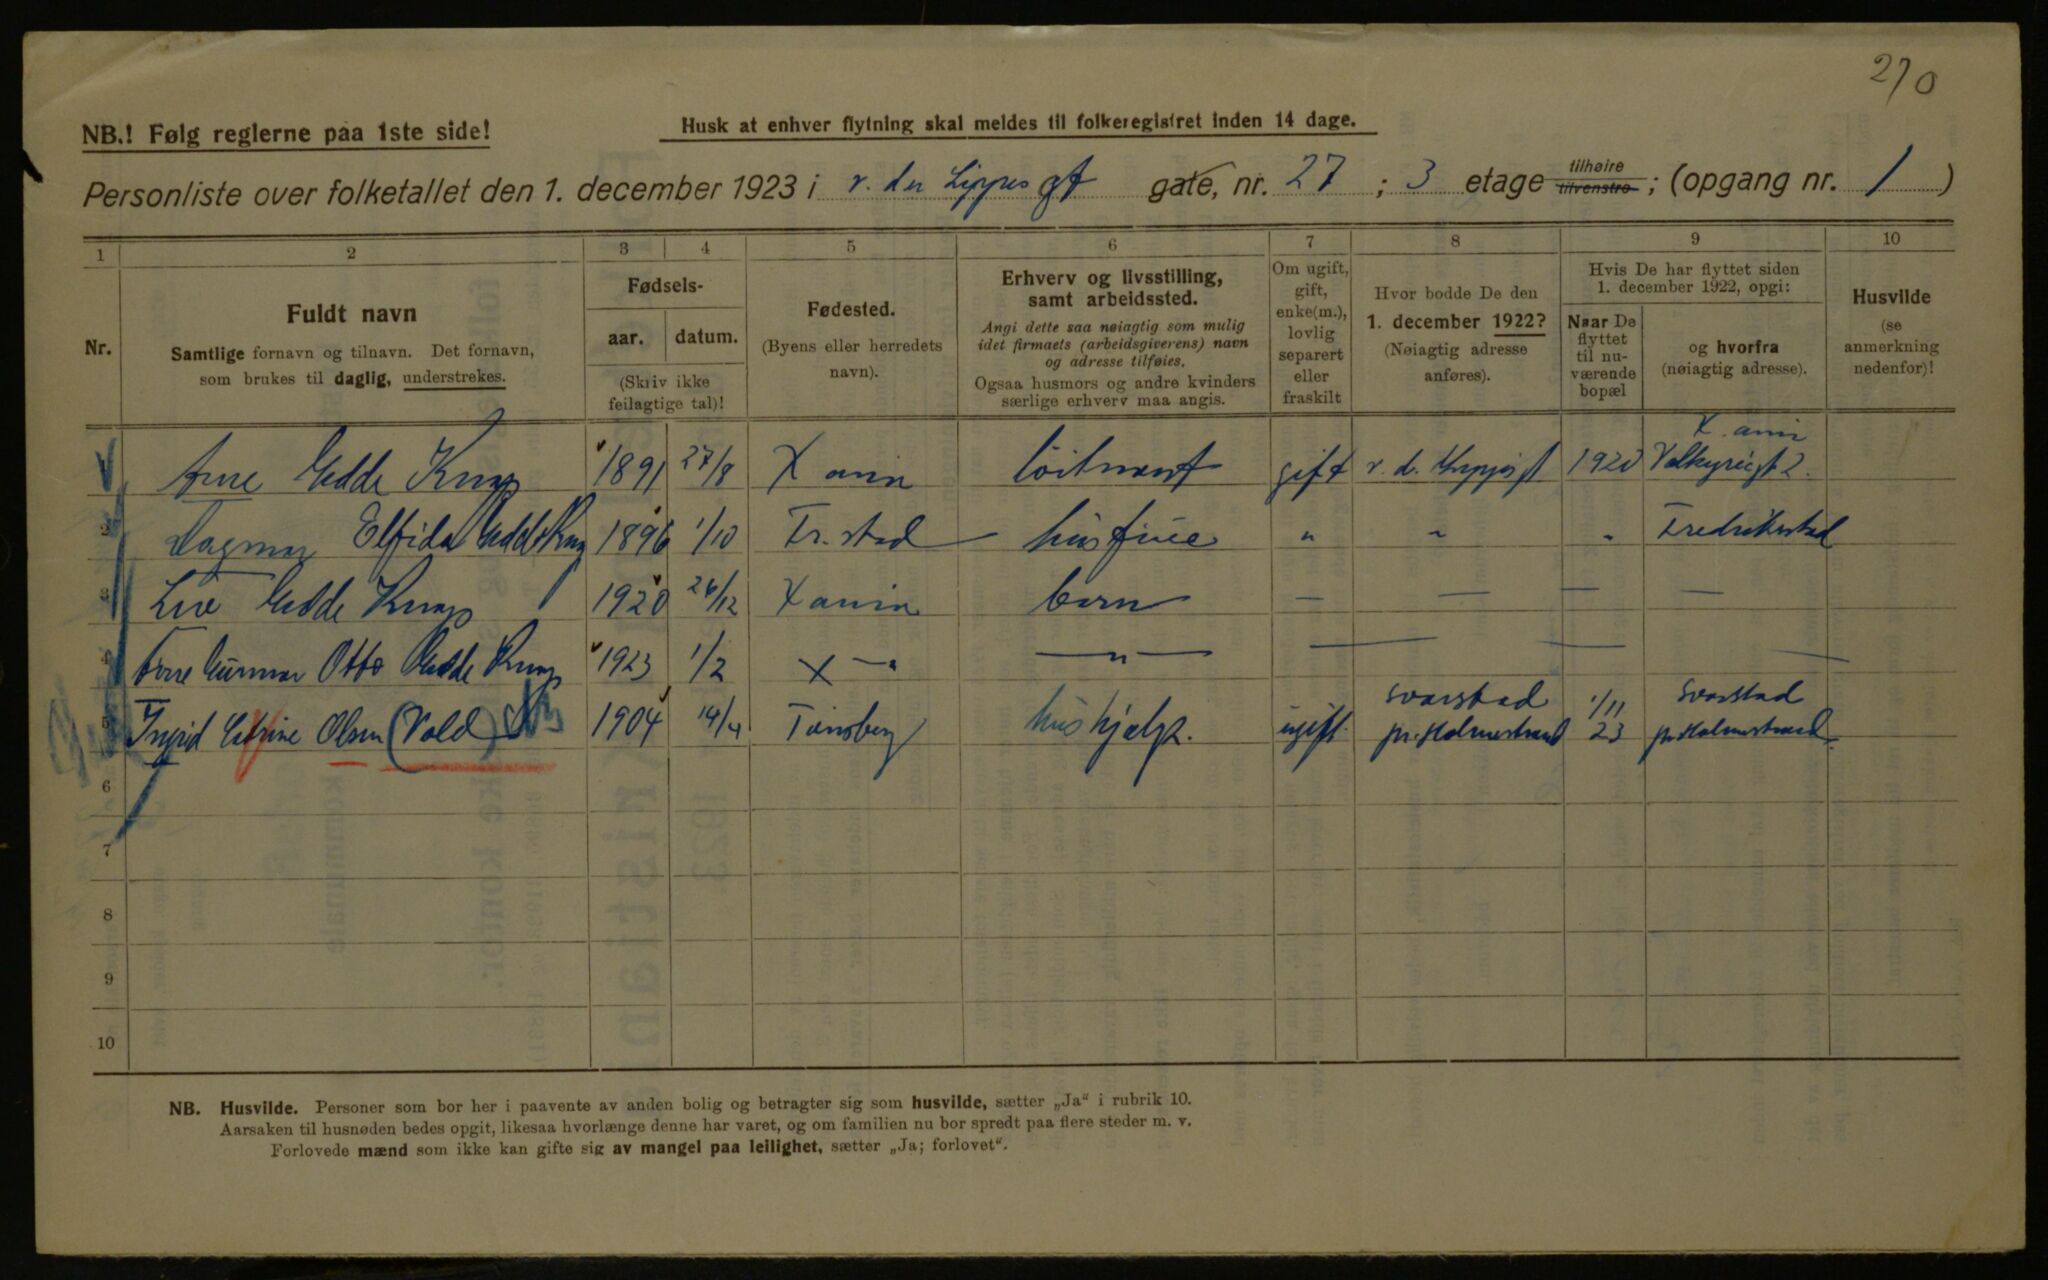 270
NB.! Følg reglerne paa 1ste side!
Husk at enhver flytning skal meldes til folkeregistret inden 14 dage.
Personliste over folketallet den 1. december 1923 i v. der Lippes gt gate, nr. 27 ; 3 etage tilhøire tilvenstre ; (opgang nr. 1 )
1 2 3 4 5 6 7 8 9 10
Nr.
Fuldt navn
Samtlige fornavn og tilnavn. Det fornavn,
som brukes til daglig, understrekes.
Fødsels-
aar. datum.
(Skriv ikke
feilagtige tal)!
Fødested.
(Byens eller herredets
navn).
Erhverv og livsstilling,
samt arbeidssted.
Angi dette saa nøiagtig som mulig
idet firmaets (arbeidsgiverens) navn
og adresse tilføies.
Ogsaa husmors og andre kvinders
særlige erhverv maa angis.
Om ugift,
gift,
enke(m.),
lovlig
separert
eller
fraskilt
Hvor bodde De den
1. december 1922?
(Nøiagtig adresse
anføres).
Hvis De har flyttet siden
1. december 1922, opgi:
Naar De
flyttet
til nu-
værende
bopæl
og hvorfra
(nøiagtig adresse).
Husvilde
(se
anmerkning
nedenfor)!
X ania
Arne Gedde Krup 1891 27/8 X ania løitnant gift v. d. Lippesgt 1920 Valkyriegt 2.
2 Dagmar Elfida Gedde Krup 1896 1/10 Fr.stad — husfrue " " " Fredrikstad
3 Live Gedde Krup 1920 26/12 Xania barn — — — —
4 Arne Gunnar Otto Gedde Krup 1923 1/2 X —"— —"— — — —
5 Ingrid Catrine Olsen (Vold) 1904 14/4 Tønsberg hushjælp. ugift. Svarstad pr. Holmestrand 1/11 23 Svarstad pr Holmestrand.
6
7
8
9
10
NB. Husvilde. Personer som bor her i paavente av anden bolig og betragter sig som husvilde, sætter „Ja“ i rubrik 10.
Aarsaken til husnøden bedes opgit, likesaa hvorlænge denne har varet, og om familien nu bor spredt paa flere steder m. v.
Forlovede mænd som ikke kan gifte sig av mangel paa leilighet, sætter „Ja; forlovet“.